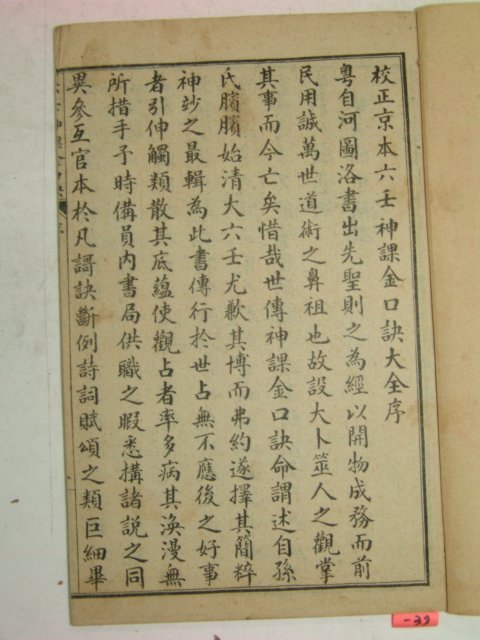 校正京本六壬神課金口訣大全序
粤自河圖洛書出先聖則之為經以開物成務而前
民用誠萬世道術之鼻祖也故設大卜筮人之觀掌
其事而今亡矣惜哉世傳神課金口訣命謂述自孫
氏臏臏始清大六壬尤歉其博而弗約遂擇其簡粹
神玅之最輯為此書傳行於世占無不應後之好事
者引伸觸類散其底蘊使觀占者率多病其渙漫無
所措手予時備員內書局供職之暇悉搆諸説之同
異參互官本於凡謌訣斷例詩詞賦頌之類巨細畢
-39